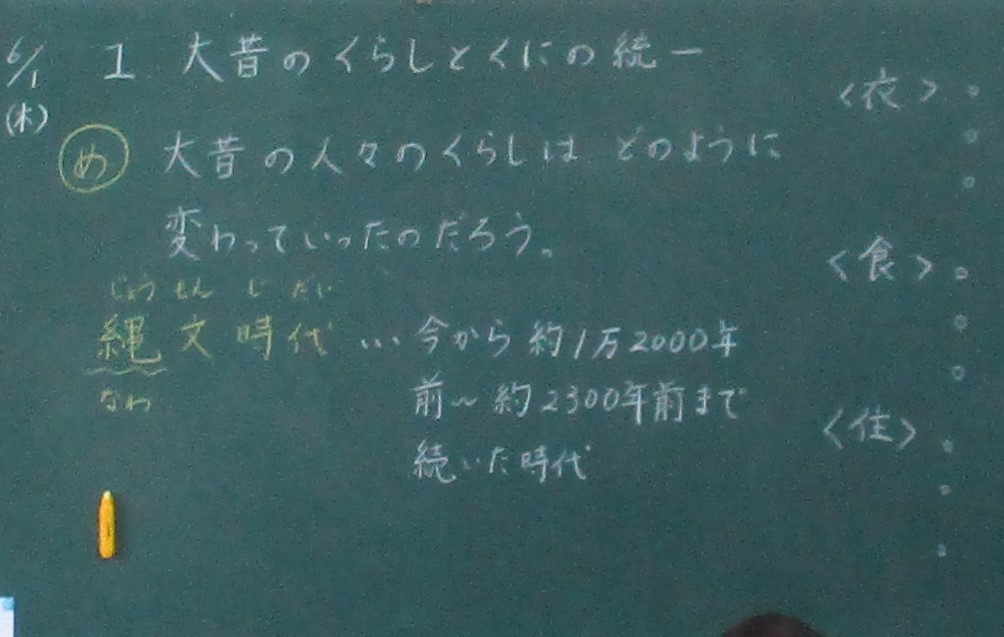 6/1
(木)
1 大昔のくらしとくにの統一
め 大昔の人々のくらしは どのように
変わっていったのだろう。
じょうもん じ だい
縄文時代 … 今から約1万2000年
なわ
前~約2300年前まで
続いた時代
<衣>
<食>
<住>